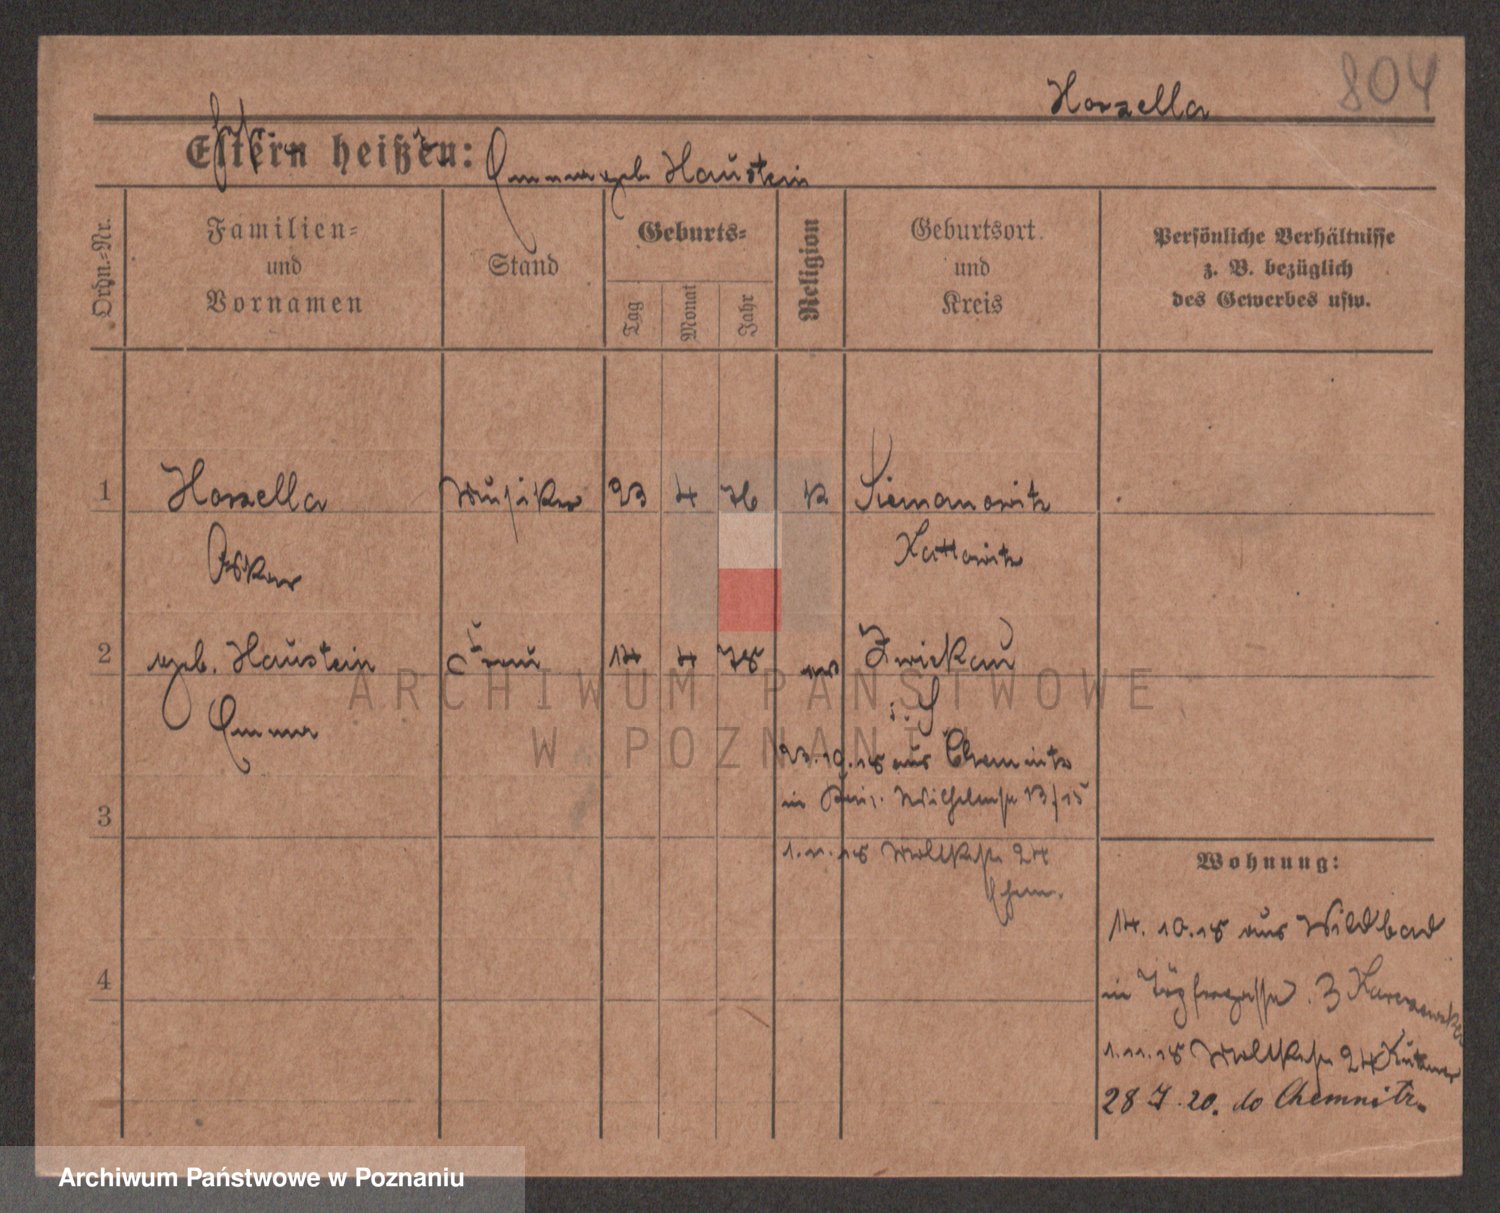 Horzella 804
Eltern heißen:
Emma geb. Haustein
Ordn.-Nr.
Familien-
und
Vornamen
Stand
Geburts-
Tag
Monat
Jahr
Religion
Geburtsort
und
Kreis
Persönliche Verhältnisse
z. B. bezüglich
des Gewerbes usw.
1 Horzella Musiker 23 4 76 K Siemanowitz
Oskar Kattowitz
2 geb. Haustein Frau 14 4 78 Zwickau
Emma i. S
23.10.18 aus Chemnitz
in Wilhelmstr 13/15
3
1.11.18 Moltkestr 24
Wohnung:
14.10.18 aus Wildbad
in Töpfergasse 3
4
1.11.18 Moltkestr 24
28 7. 20. do Chemnitz.
ARCHIWUM PAŃSTWOWE
W POZNANIU
Archiwum Państwowe w Poznaniu